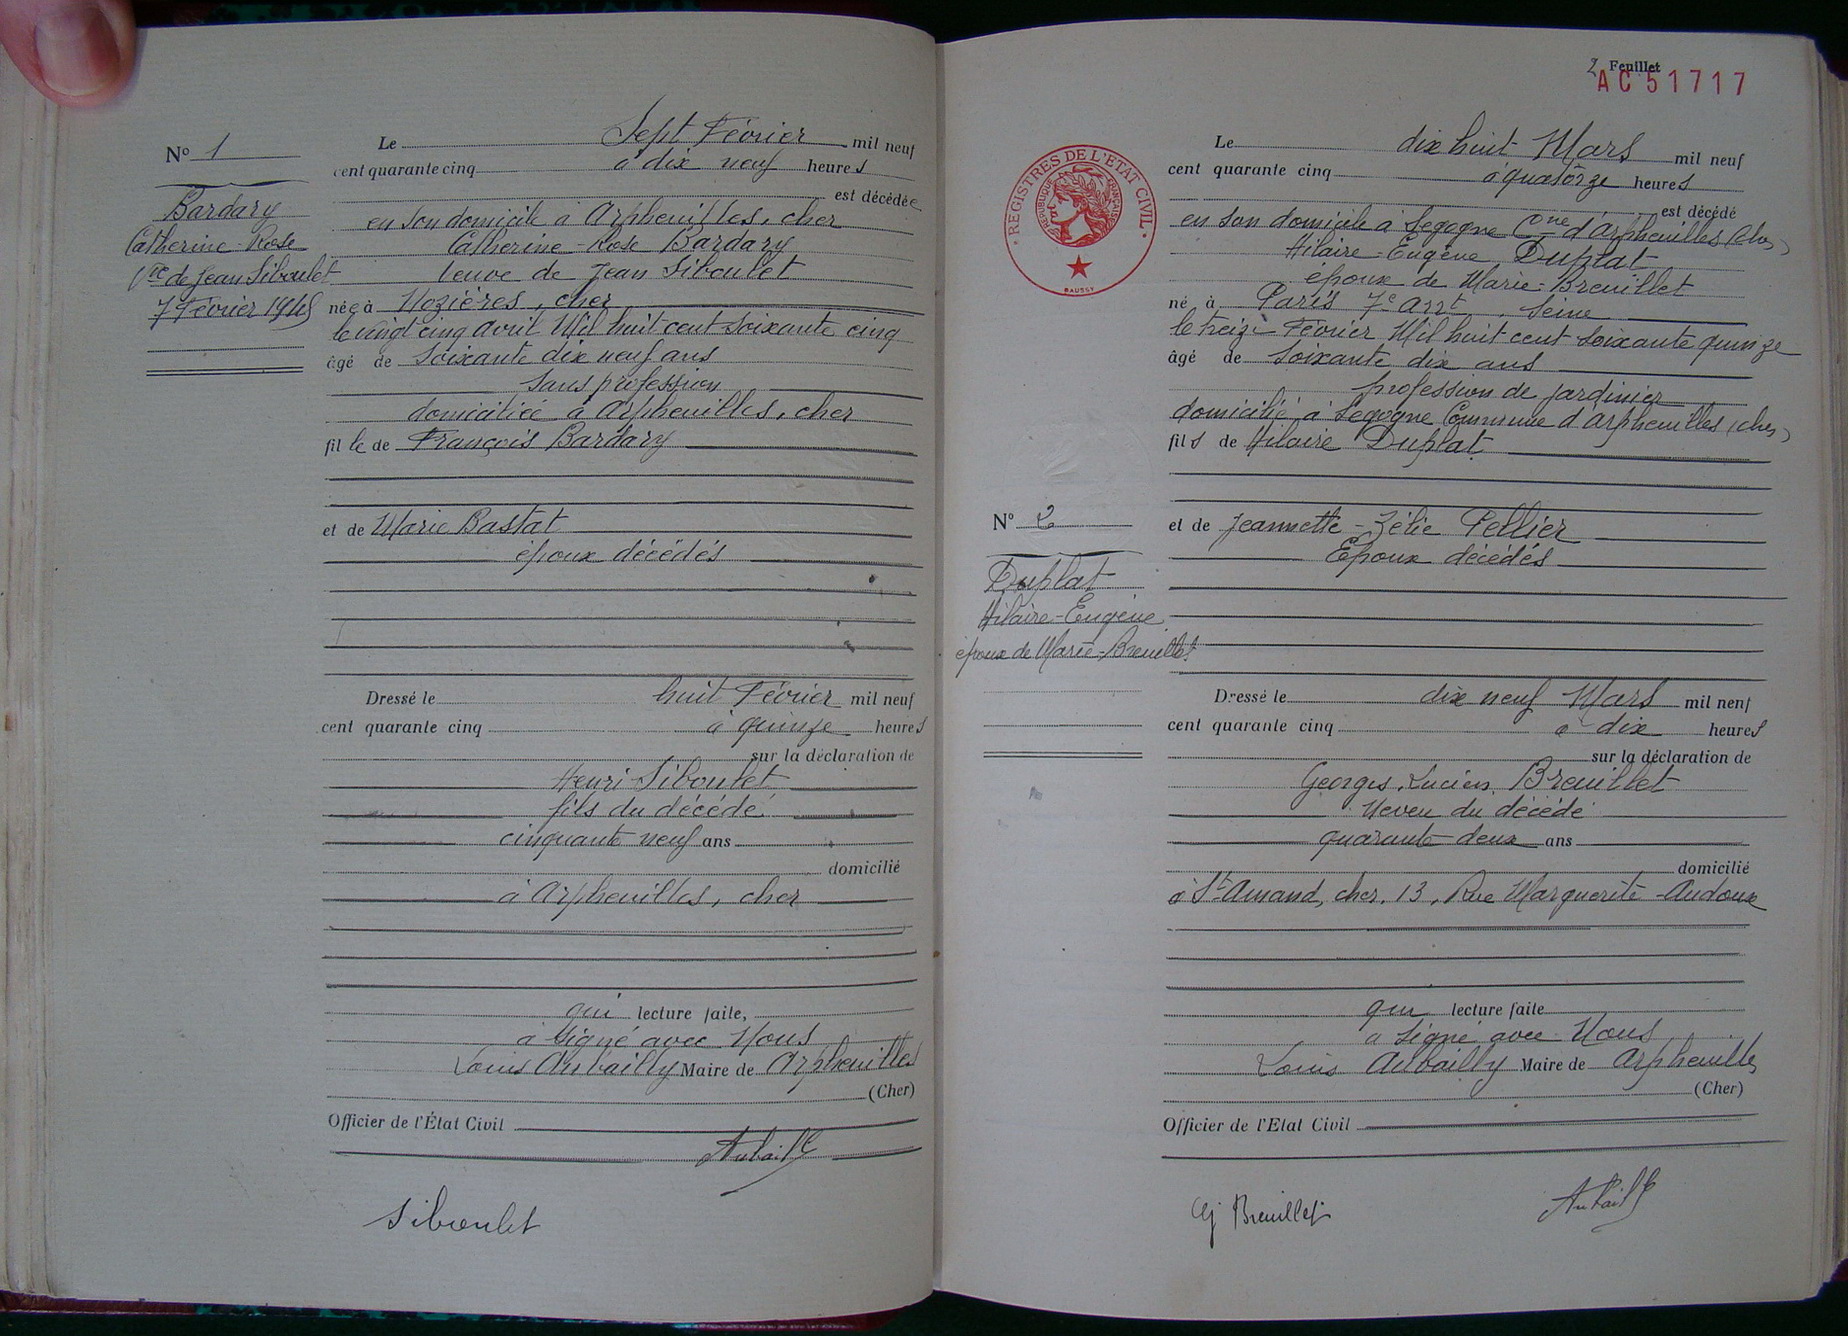 Nº 1
Bardary
Catherine-Rose
Vve de Jean Siboulet
7 Février 1945
Le Sept Février mil neuf
cent quarante cinq à dix neuf heures
est décédée
en son domicile à Arpheuilles, cher
Catherine-Rose Bardary
Veuve de Jean Siboulet
née à Nozières, cher
le vingt cinq avril Mil huit cent soixante cinq
âgé de Soixante dix neuf ans
sans profession
domiciliée à Arpheuilles, cher
fille de François Bardary
et de Marie Bastat
époux décédés
Dressé le huit Février mil neuf
cent quarante cinq à quinze heures
sur la déclaration de
Henri Siboulet
fils du décédé
cinquante neuf ans
domicilié
à Arpheuilles, cher
qui lecture faite,
a signé avec Nous
Louis Aubailly Maire de Arpheuilles
(Cher)
Officier de l'État Civil
Aubailly
Siboulet
2 Feuillet
AC51717
REGISTRES DE L'ETAT CIVIL
REPUBLIQUE FRANÇAISE
BAUSSY
Nº 2
Duplat
Hilaire-Eugène
époux de Marie-Breuillet
Le dix huit Mars mil neuf
cent quarante cinq à quatorze heures
est décédé
en son domicile à Segogne Cne d'Arpheuilles (cher)
Hilaire-Eugène, Duplat
époux de Marie-Breuillet
né à Paris 7e Arrt, Seine
le treize Février Mil huit cent soixante quinze
âgé de Soixante dix ans
profession de jardinier
domicilié à Segogne Commune d'Arpheuilles (cher)
fils de Hilaire Duplat
et de Jeannette-Zélie Pellier
Epoux décédés
Dressé le dix neuf Mars mil neuf
cent quarante cinq à dix heures
sur la déclaration de
Georges, Lucien, Breuillet
Neveu du décédé
quarante deux ans
domicilié
à St-Amand, cher, 13, Rue Marguerite-Audoux
qui lecture faite
a signé avec Nous
Louis Aubailly Maire de Arpheuilles
(Cher)
Officier de l'Etat Civil
Aubailly
G Breuillet